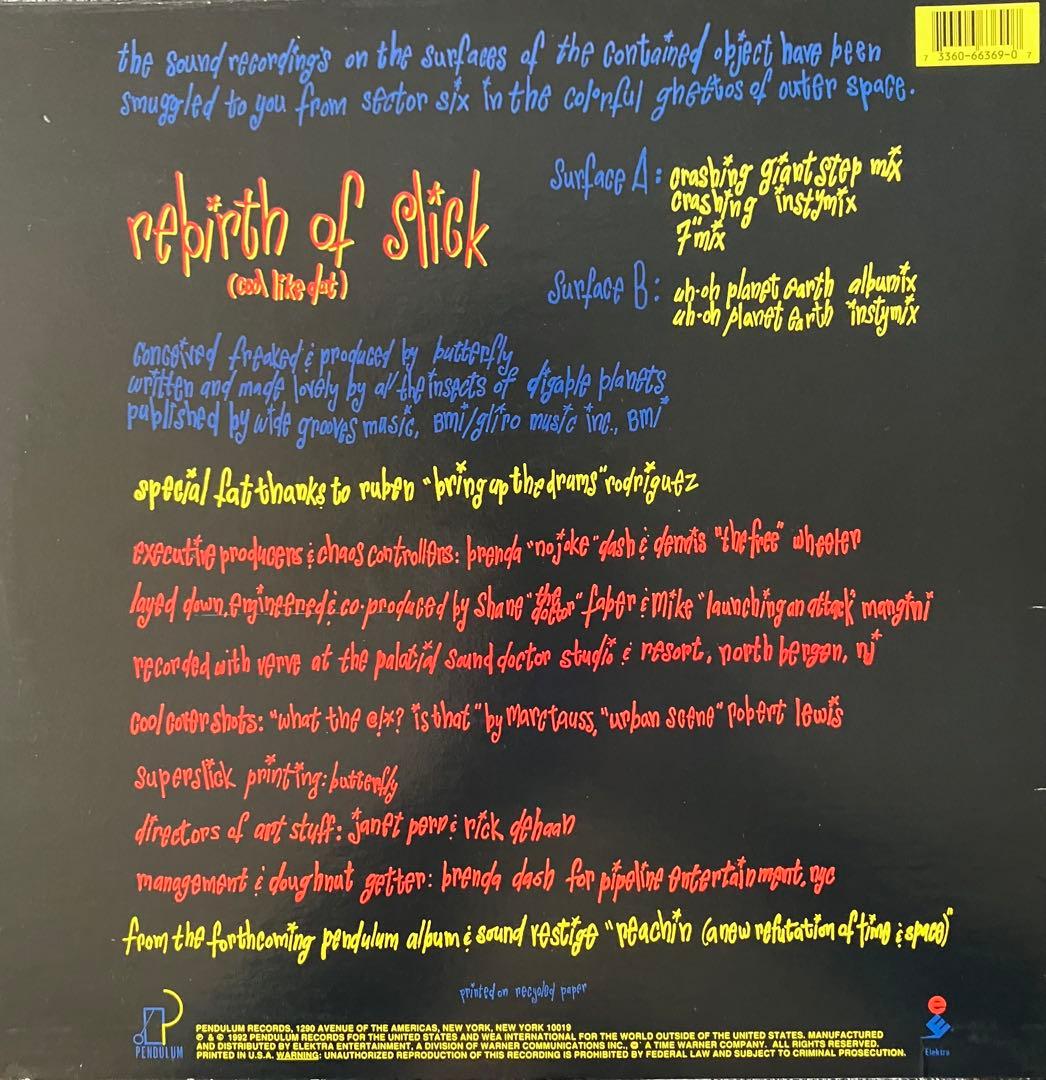 7 3360-66369-0 7
the sound recordings on the surfaces of the contained object have been
smuggled to you from sector six in the colorful ghettos of outer space.
rebirth of slick
(cool like dat)
Surface A: crashing giant step mix
crashing instymix
7" mix
Surface B: uh-oh planet earth albumix
uh-oh planet earth instymix
conceived freaked & produced by butterfly
written and made lovely by all the insects of digable planets
published by wide grooves music, BMI/gliro music inc., BMI
special fat thanks to ruben "bring up the drums" rodriguez
executive producers & chaos controllers: brenda "no joke" dash & dennis "the free" wheeler
layed down, engineered & co-produced by Shane "the doctor" faber & Mike "launching an attack" mangini
recorded with verve at the palatial sound doctor studio & resort, north bergen, nj
cool cover shots: "what the @!*? is that" by marc tauss, "urban scene" robert lewis
superslick printing: butterfly
directors of art stuff: janet perr & rick dehaan
management & doughnut getter: brenda dash for pipeline entertainment, nyc
from the forthcoming pendulum album & sound vestige "reachin (a new refutation of time & space)"
printed on recycled paper
PENDULUM
PENDULUM RECORDS, 1290 AVENUE OF THE AMERICAS, NEW YORK, NEW YORK 10019
℗ & © 1992 PENDULUM RECORDS FOR THE UNITED STATES AND WEA INTERNATIONAL FOR THE WORLD OUTSIDE OF THE UNITED STATES. MANUFACTURED
AND DISTRIBUTED BY ELEKTRA ENTERTAINMENT, A DIVISION OF WARNER COMMUNICATIONS INC., A TIME WARNER COMPANY. ALL RIGHTS RESERVED.
PRINTED IN U.S.A. WARNING: UNAUTHORIZED REPRODUCTION OF THIS RECORDING IS PROHIBITED BY FEDERAL LAW AND SUBJECT TO CRIMINAL PROSECUTION.
Elektra